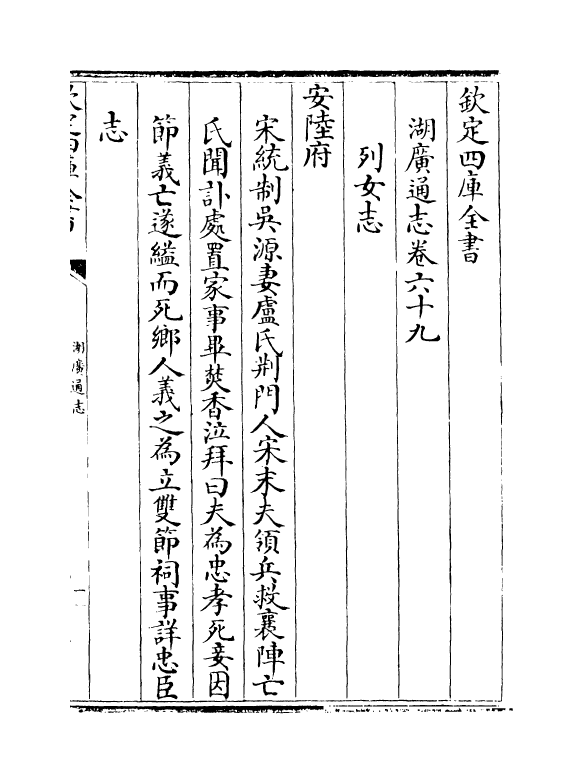 欽定四庫全書
湖廣通志卷六十九
列女志
安陸府
宋統制吳源妻盧氏荆門人宋末夫領兵救襄陣亡
氏聞訃處置家事畢焚香泣拜曰夫為忠孝死妾因
節義亡遂縊而死鄉人義之為立雙節祠事詳忠臣
志
欽定四庫全書
湖廣通志
一